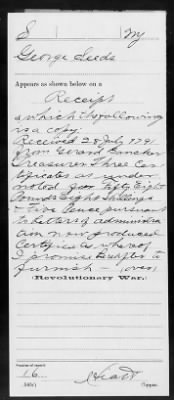 S | NY
George Leeds
Appears as shown below on a
Receipt
of which the following
is a copy:
Received 28 July 1791
from Gerard Bancker
Treasurer Three Cer-
tificates as under
noted for Fifty Eight
Pounds Eight Shillings
& Five Pence pursuant
to Letters of administra
tion now produced
Certified as whereof
I promise to
furnish — (over)
Revolutionary War.
16
Copyist.